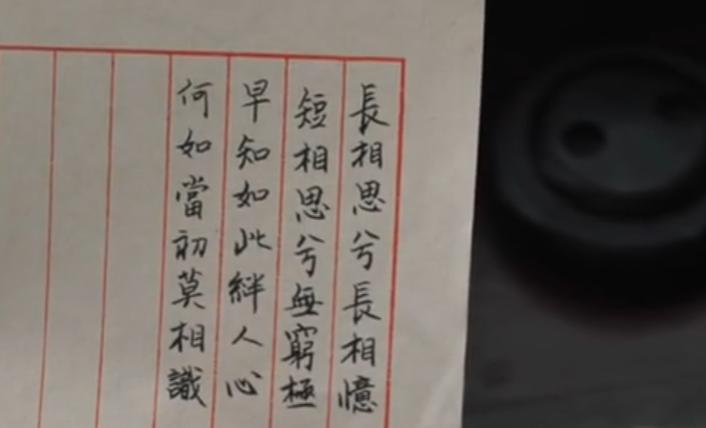 長相思兮長相憶
短相思兮無窮極
早知如此絆人心
何如當初莫相識